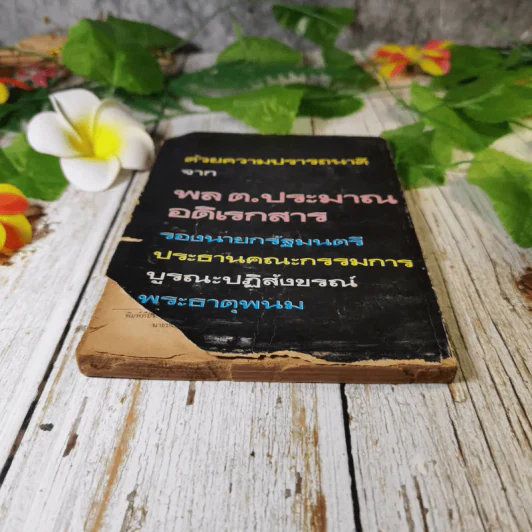 ด้วยความปรารถนาดี
จาก
พล ต.ประมาณ
อดิเรกสาร
รองนายกรัฐมนตรี
ประธานคณะกรรมการ
บูรณะปฏิสังขรณ์
พระธาตุพนม